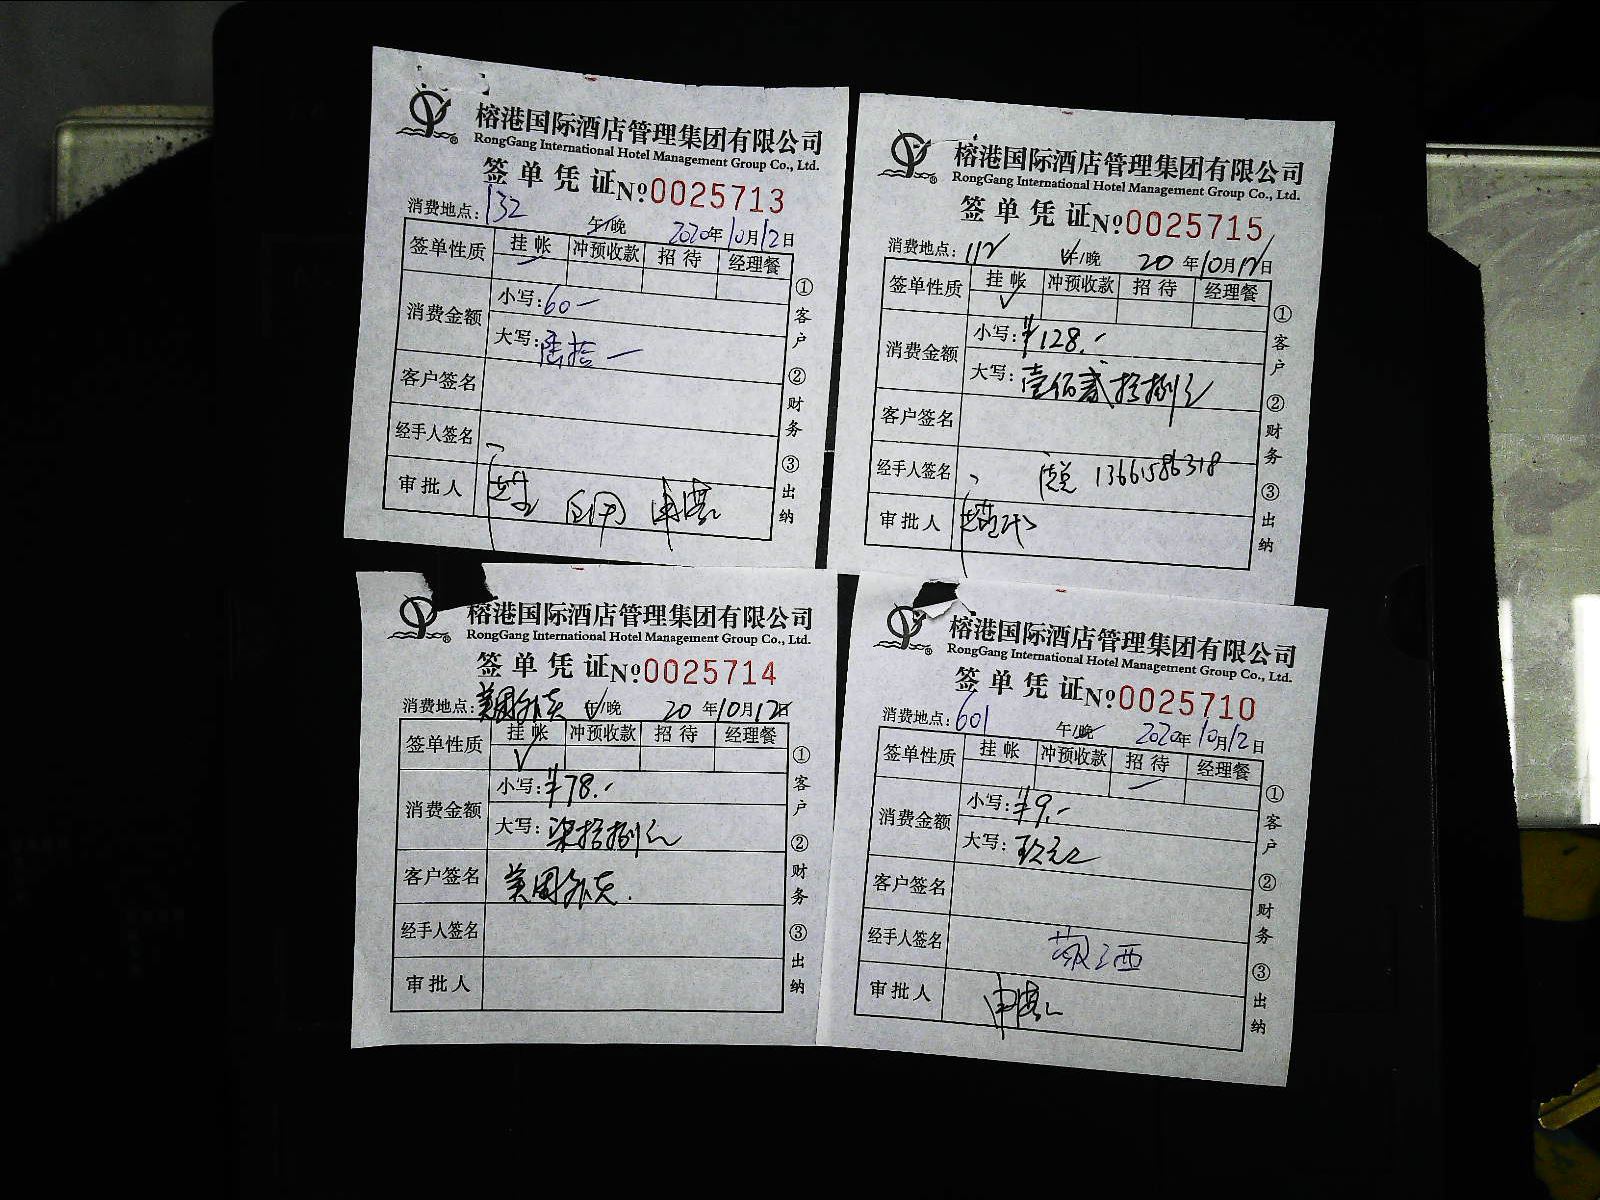 榕港国际酒店管理集团有限公司
RongGang International Hotel Management Group Co., Ltd.
签单凭证№0025713
消费地点:132 午/晚 2020年10月12日
签单性质 挂帐 冲预收款 招待 经理餐
消费金额 小写:60一
大写:陆拾一
客户签名
经手人签名
审批人
①客户 ②财务 ③出纳
榕港国际酒店管理集团有限公司
RongGang International Hotel Management Group Co., Ltd.
签单凭证№0025715
消费地点:112 午/晚 20年10月12日
签单性质 挂帐 冲预收款 招待 经理餐
消费金额 小写:¥128.-
大写:壹佰贰拾捌元
客户签名
经手人签名 13661586318
审批人
①客户 ②财务 ③出纳
榕港国际酒店管理集团有限公司
RongGang International Hotel Management Group Co., Ltd.
签单凭证№0025714
消费地点:美团外卖 午/晚 20年10月12日
签单性质 挂帐 冲预收款 招待 经理餐
消费金额 小写:¥78.-
大写:柒拾捌元
客户签名 美团外卖.
经手人签名
审批人
①客户 ②财务 ③出纳
榕港国际酒店管理集团有限公司
RongGang International Hotel Management Group Co., Ltd.
签单凭证№0025710
消费地点:601 午/晚 2020年10月12日
签单性质 挂帐 冲预收款 招待 经理餐
消费金额 小写:¥9.-
大写:玖元
客户签名
经手人签名
审批人
①客户 ②财务 ③出纳